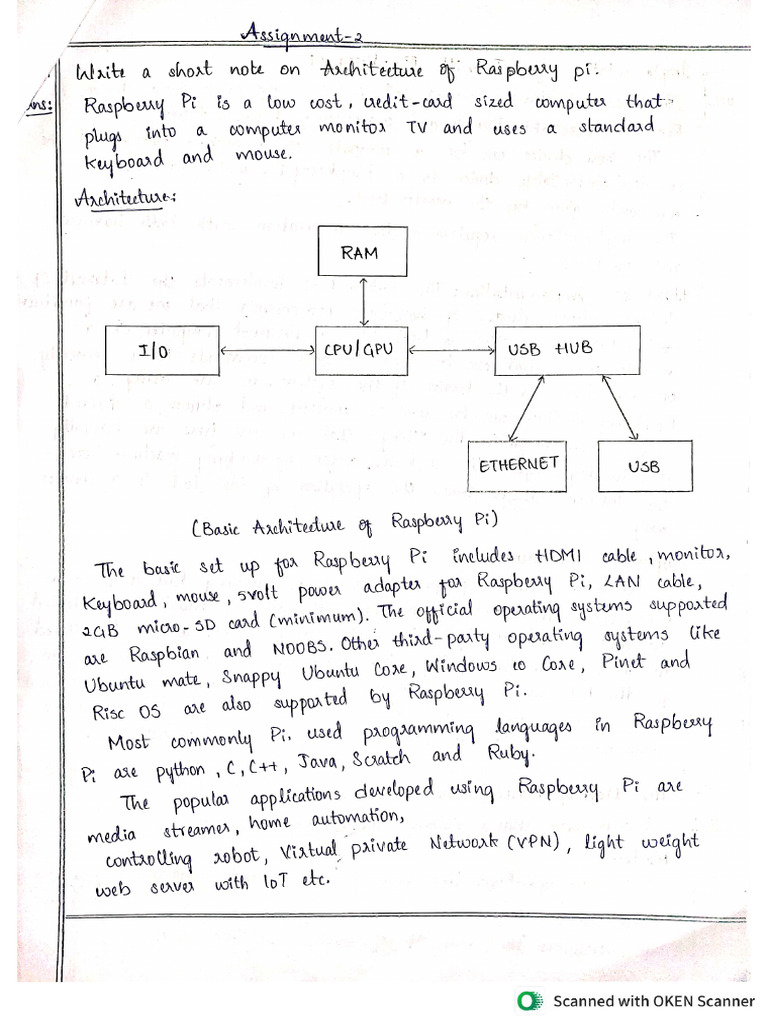 Assignment-2
Write a short note on Architecture of Raspberry pi.
Ans: Raspberry Pi is a low cost, credit-card sized computer that
plugs into a computer monitor TV and uses a standard
keyboard and mouse.
Architecture:
RAM
I/O
CPU/GPU
USB HUB
ETHERNET
USB
(Basic Architecture of Raspberry Pi)
The basic set up for Raspberry Pi includes HDMI cable, monitor,
Keyboard, mouse, 5volt power adapter for Raspberry Pi, LAN cable,
2GB micro-SD card (minimum). The official operating systems supported
are Raspbian and NOOBS. Other third-party operating systems like
Ubuntu mate, Snappy Ubuntu Core, Windows 10 Core, Pinet and
Risc OS are also supported by Raspberry Pi.
Most commonly Pi. used programming languages in Raspberry
Pi are python, C, C++, Java, Scratch and Ruby.
The popular applications developed using Raspberry Pi are
media streamer, home automation,
controlling robot, Virtual private Network (VPN), light weight
web server with IoT etc.
Scanned with OKEN Scanner